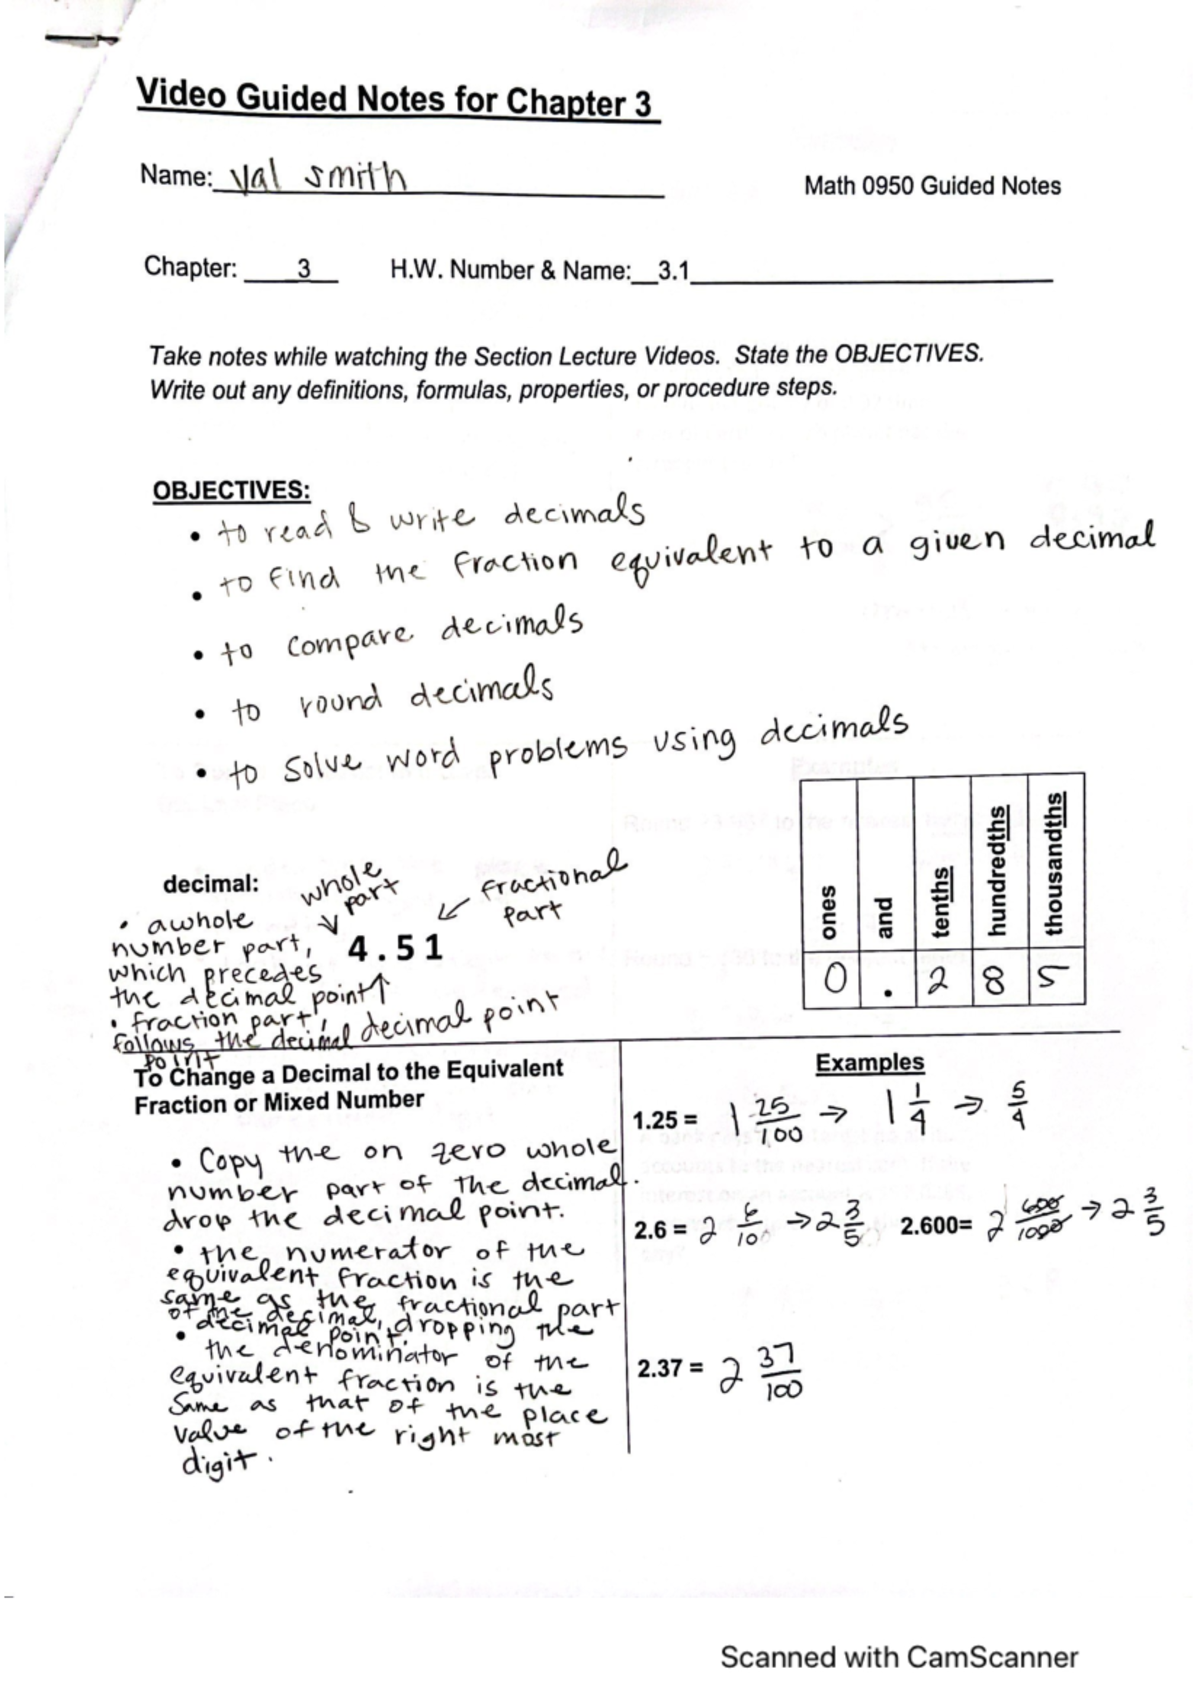 Video Guided Notes for Chapter 3
Name: Val smith
Math 0950 Guided Notes
Chapter: 3 H.W. Number & Name: 3.1
Take notes while watching the Section Lecture Videos. State the OBJECTIVES.
Write out any definitions, formulas, properties, or procedure steps.
OBJECTIVES:
• to read & write decimals
• to find the fraction equivalent to a given decimal
• to compare decimals
• to round decimals
• to solve word problems using decimals
ones and tenths hundredths thousandths
0 . 2 8 5
decimal:
• a whole
number part,
which precedes
the decimal point
• fraction part,
follows the decimal
point
whole
part
fractional
part
4.51
decimal point
To Change a Decimal to the Equivalent
Fraction or Mixed Number
• Copy the on zero whole
number part of the decimal.
drop the decimal point.
• the numerator of the
equivalent fraction is the
same as the fractional part
of the decimal, dropping the
decimal point.
• the denominator of the
equivalent fraction is the
same as that of the place
value of the right most
digit.
Examples
1.25 = 1 25/100 → 1 1/4 → 5/4
2.6 = 2 6/10 → 2 3/5 2.600= 2 600/1000 → 2 3/5
2.37 = 2 37/100
Scanned with CamScanner